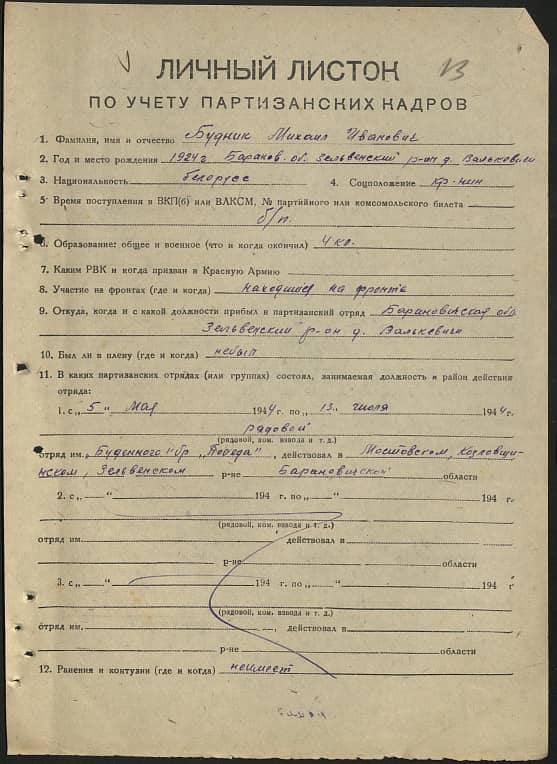 13
ЛИЧНЫЙ ЛИСТОК
ПО УЧЕТУ ПАРТИЗАНСКИХ КАДРОВ
1. Фамилия, имя и отчество Будник Михаил Иванович
2. Год и место рождения 1924 г Баранов. об. Зельвенский р-он д. Вальковичи
3. Национальность белорусс 4. Соцположение кр-нин
5. Время поступления в ВКП(б) или ВЛКСМ, № партийного или комсомольского билета
б/п.
6. Образование: общее и военное (что и когда окончил) 4 кл.
7. Каким РВК и когда призван в Красную Армию
8. Участие на фронтах (где и когда) находился на фронте
9. Откуда, когда и с какой должности прибыл в партизанский отряд Барановичская об
Зельвенский р-он д. Валькевичи
10. Был ли в плену (где и когда) небыл
11. В каких партизанских отрядах (или группах) состоял, занимаемая должность и район действия
отряда:
1. с „5" Мая 1944 г. по „13" июля 1944 г.
рядовой
(рядовой, ком. взвода и т. д.)
отряд им. Буденного" бр „Победа", действовал в Мостовском, Козловщи-
нском, Зельвенском р-не Барановичской области
2. с „ " 194 г. по „ " 194 г.
(рядовой, ком. взвода и т. д.)
отряд им. действовал в
р-не области
3. с „ " 194 г. по „ " 194 г
(рядовой, ком. взвода и т. д.)
отряд им. , действовал в
р-не области
12. Ранения и контузии (где и когда) неимеет